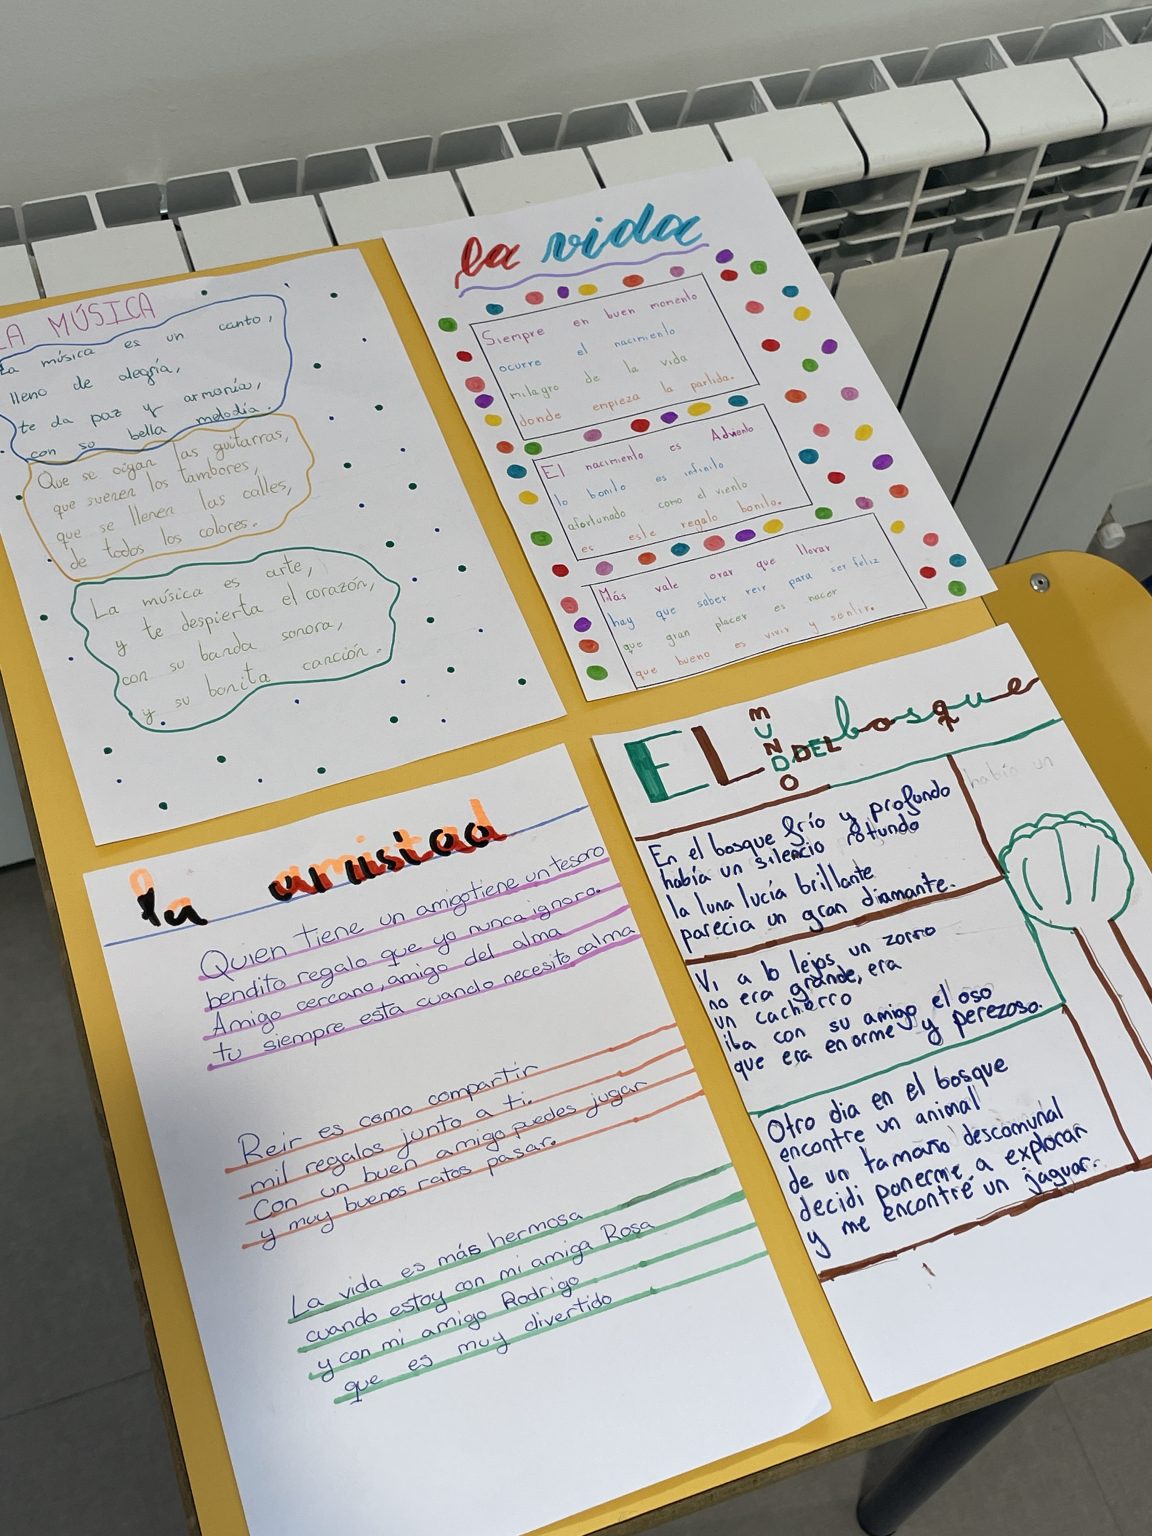 LA MÚSICA
La música es un canto,
lleno de alegría,
te da paz y armonía,
con su bella melodía.
Que se oigan las guitarras,
que suenen los tambores,
que se llenen las calles,
de todos los colores.
La música es arte,
y te despierta el corazón,
con su banda sonora,
y su bonita canción.
la vida
Siempre en buen momento
ocurre el nacimiento
milagro de la vida
donde empieza la partida.
El nacimiento es Adviento
lo bonito es infinito
afortunado como el viento
es este regalo bonito.
Más vale orar que llorar
hay que saber reir para ser feliz
que gran placer es nacer
que bueno es vivir y sentir.
la amistad
Quien tiene un amigo tiene un tesoro
bendito regalo que yo nunca ignoro.
Amigo cercano, amigo del alma
tu siempre esta cuando necesito calma
Reir es como compartir
mil regalos junto a ti.
Con un buen amigo puedes jugar
y muy buenos ratos pasar.
La vida es más hermosa
cuando estoy con mi amiga Rosa
y con mi amigo Rodrigo
que es muy divertido
EL MUNDO DEL bosque
había un
En el bosque frío y profundo
había un silencio rotundo
la luna lucía brillante
parecia un gran diamante.
Vi a lo lejos un zorro
no era grande, era
un cachorro
iba con su amigo el oso
que era enorme y perezoso.
Otro dia en el bosque
encontre un animal
de un tamaño descomunal
decidi ponerme a explorar
y me encontré un jaguar.